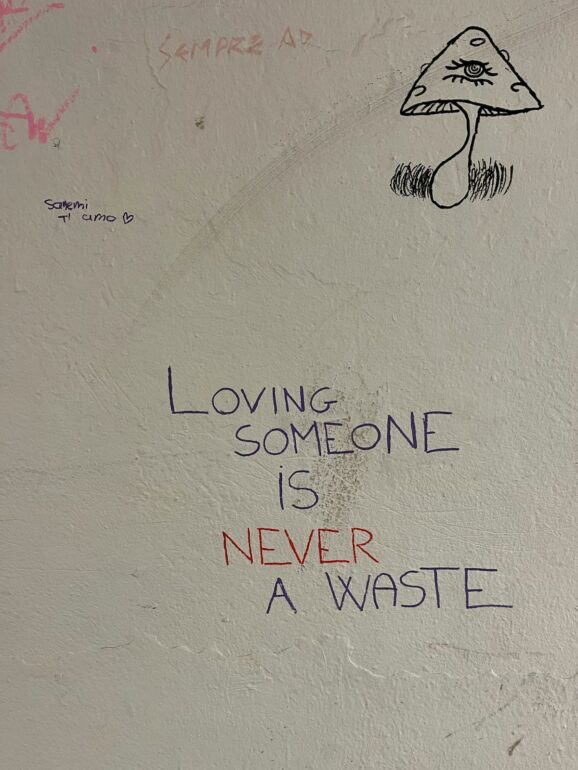 SEMPRE AD
Sanemi
Ti amo
LOVING
SOMEONE
iS
NEVER
A WASTE